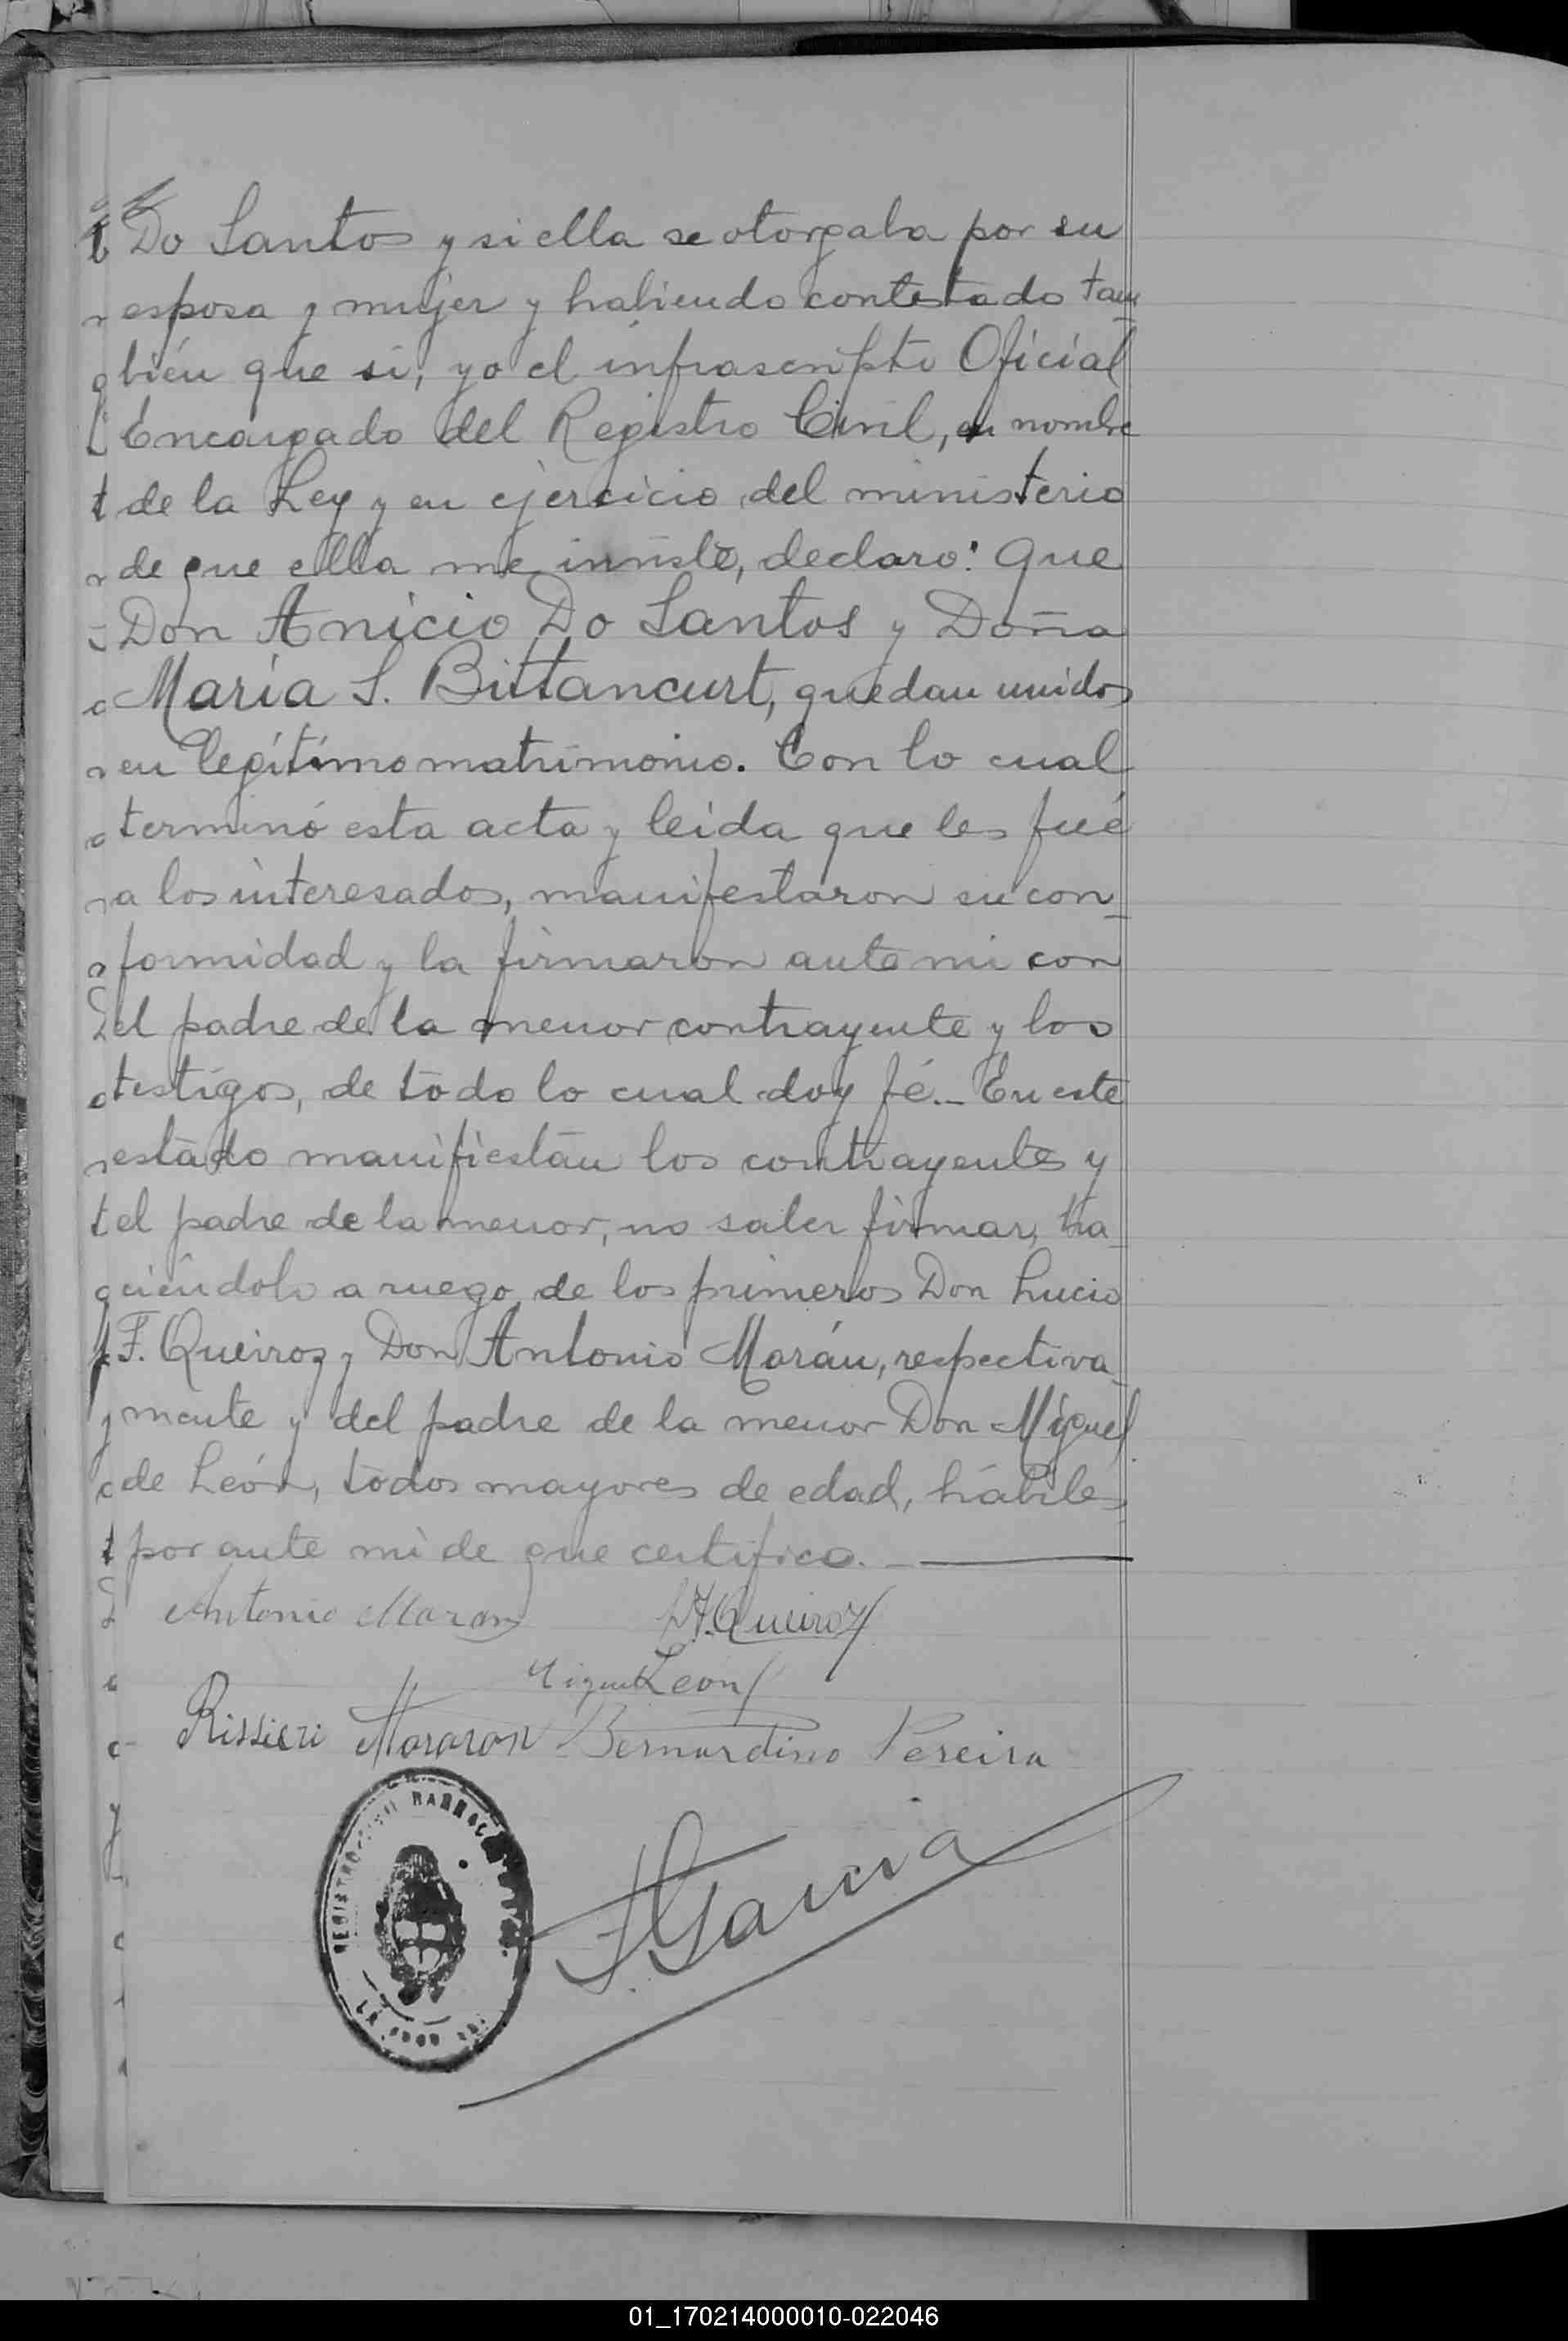 Do Santos y si ella se otorgaba por su
esposa y mujer y habiendo contestado tam
bién que sí, yo el infrascripto Oficial
Encargado del Registro Civil, en nombre
de la Ley y en ejercicio del ministerio
de que ella me inviste, declaro: Que
Don Anicio Do Santos y Doña
María S. Bittancurt, quedan unidos
en legítimo matrimonio. Con lo cual
terminó esta acta y leída que les fué
a los interesados, manifestaron su con-
formidad y la firmaron ante mi con
el padre de la menor contrayente y los
testigos, de todo lo cual doy fé.- En este
estado manifiestan los contrayentes y
el padre de la menor, no saber firmar, ha-
ciéndolo a ruego de los primeros Don Lucio
F. Queiroz y Don Antonio Morán, respectiva-
mente y del padre de la menor Don Miguel
de León, todos mayores de edad, hábiles
por ante mi de que certifico.
Antonio Moran F. Queiroz
Miguel Leon
Rissieri Bernardino Pereira
REGISTRO
F. Garcia
01_170214000010-022046